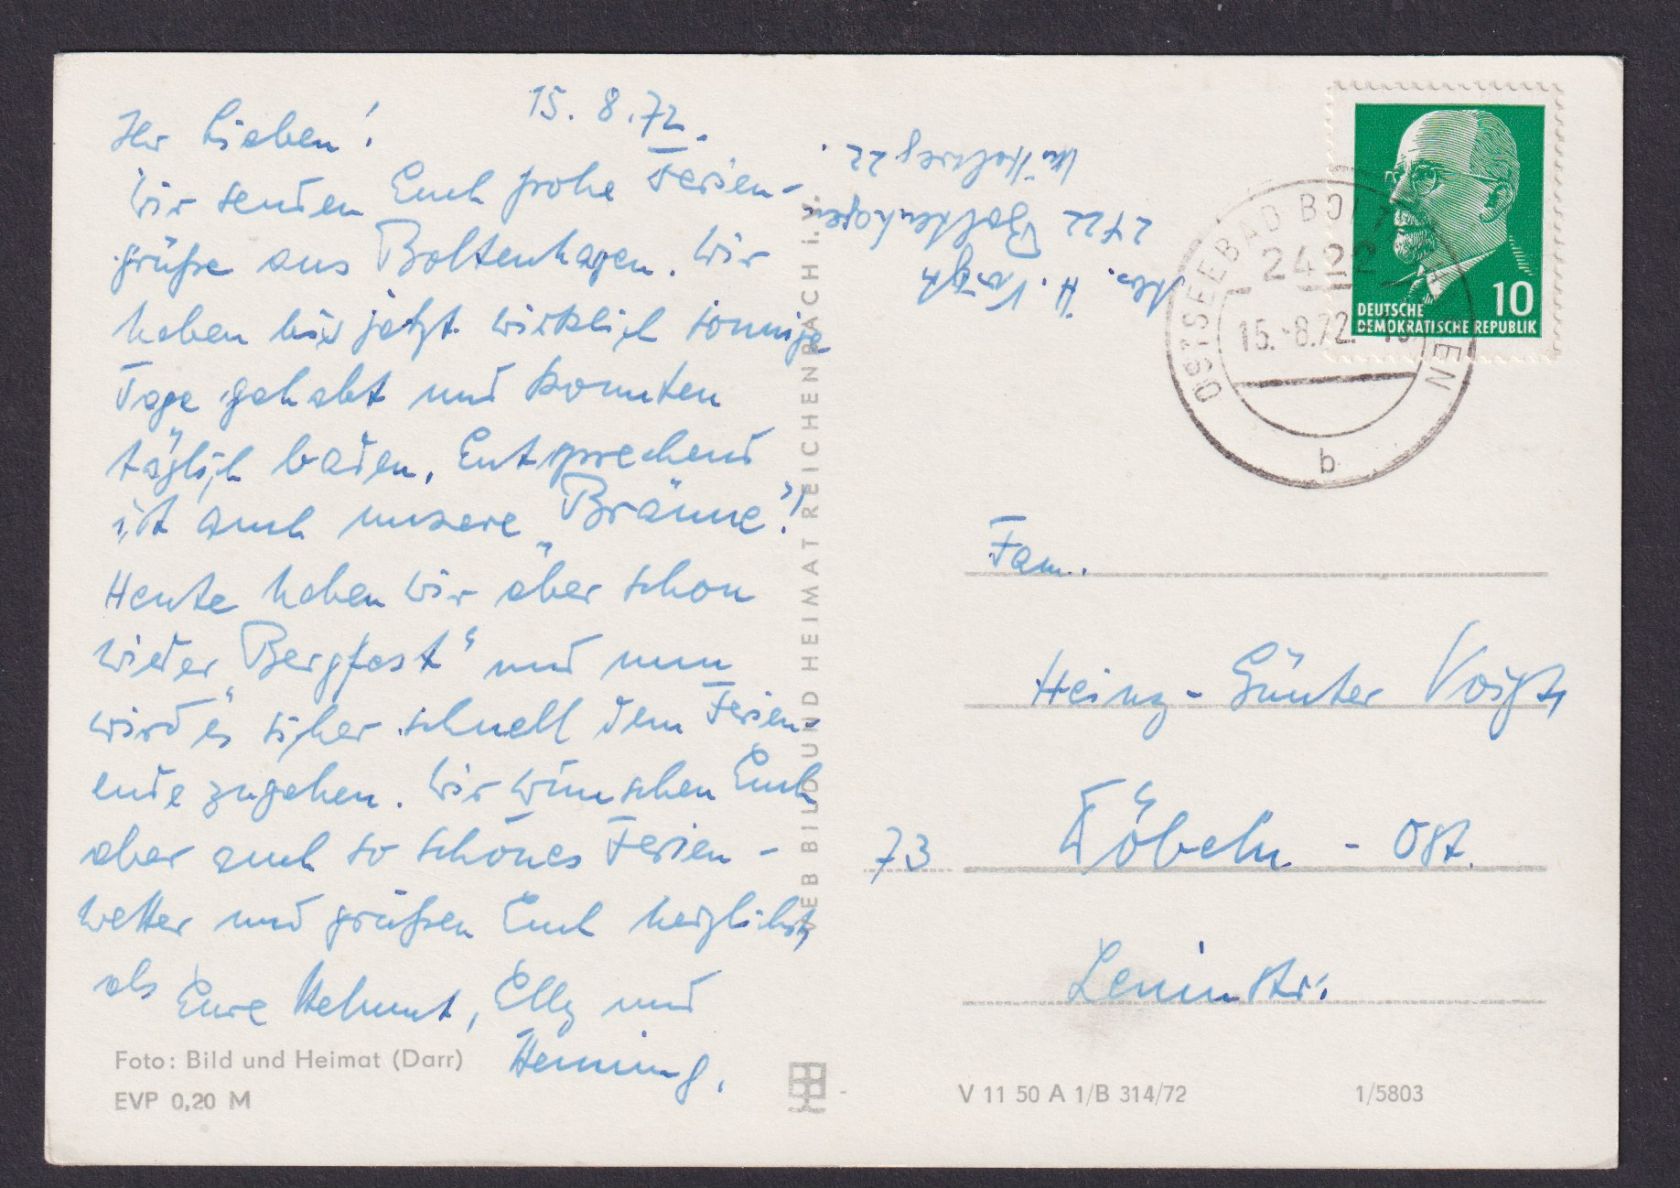 15. 8. 72.
Ihr Lieben!
Wir senden Euch frohe Ferien-
grüße aus Boltenhagen. Wir
haben hier jetzt wirklich sonnige
Tage gehabt und konnten
täglich baden. Entsprechend
ist auch unsere „Bräune“!
Heute haben wir aber schon
wieder „Bergfest“ und nun
wird es sicher schnell dem Ferien-
ende zugehen. Wir wünschen Euch
aber auch so schönes Ferien-
wetter und grüßen Euch herzlichst,
als Eure Helmut, Elly und
Henning.
Foto: Bild und Heimat (Darr)
EVP 0,20 M
VEB BILD UND HEIMAT REICHENBACH i. V.
Abs. H. Voigt
2422 Boltenhagen
Mittelweg 22
OSTSEEBAD BOLTENHAGEN
2422
15.-8.72.
b
10
DEUTSCHE
DEMOKRATISCHE REPUBLIK
Fam.
Heinz-Günter Voigt,
73 Döbeln - Ost.
Leninstr.
V 11 50 A 1/B 314/72
1/5803